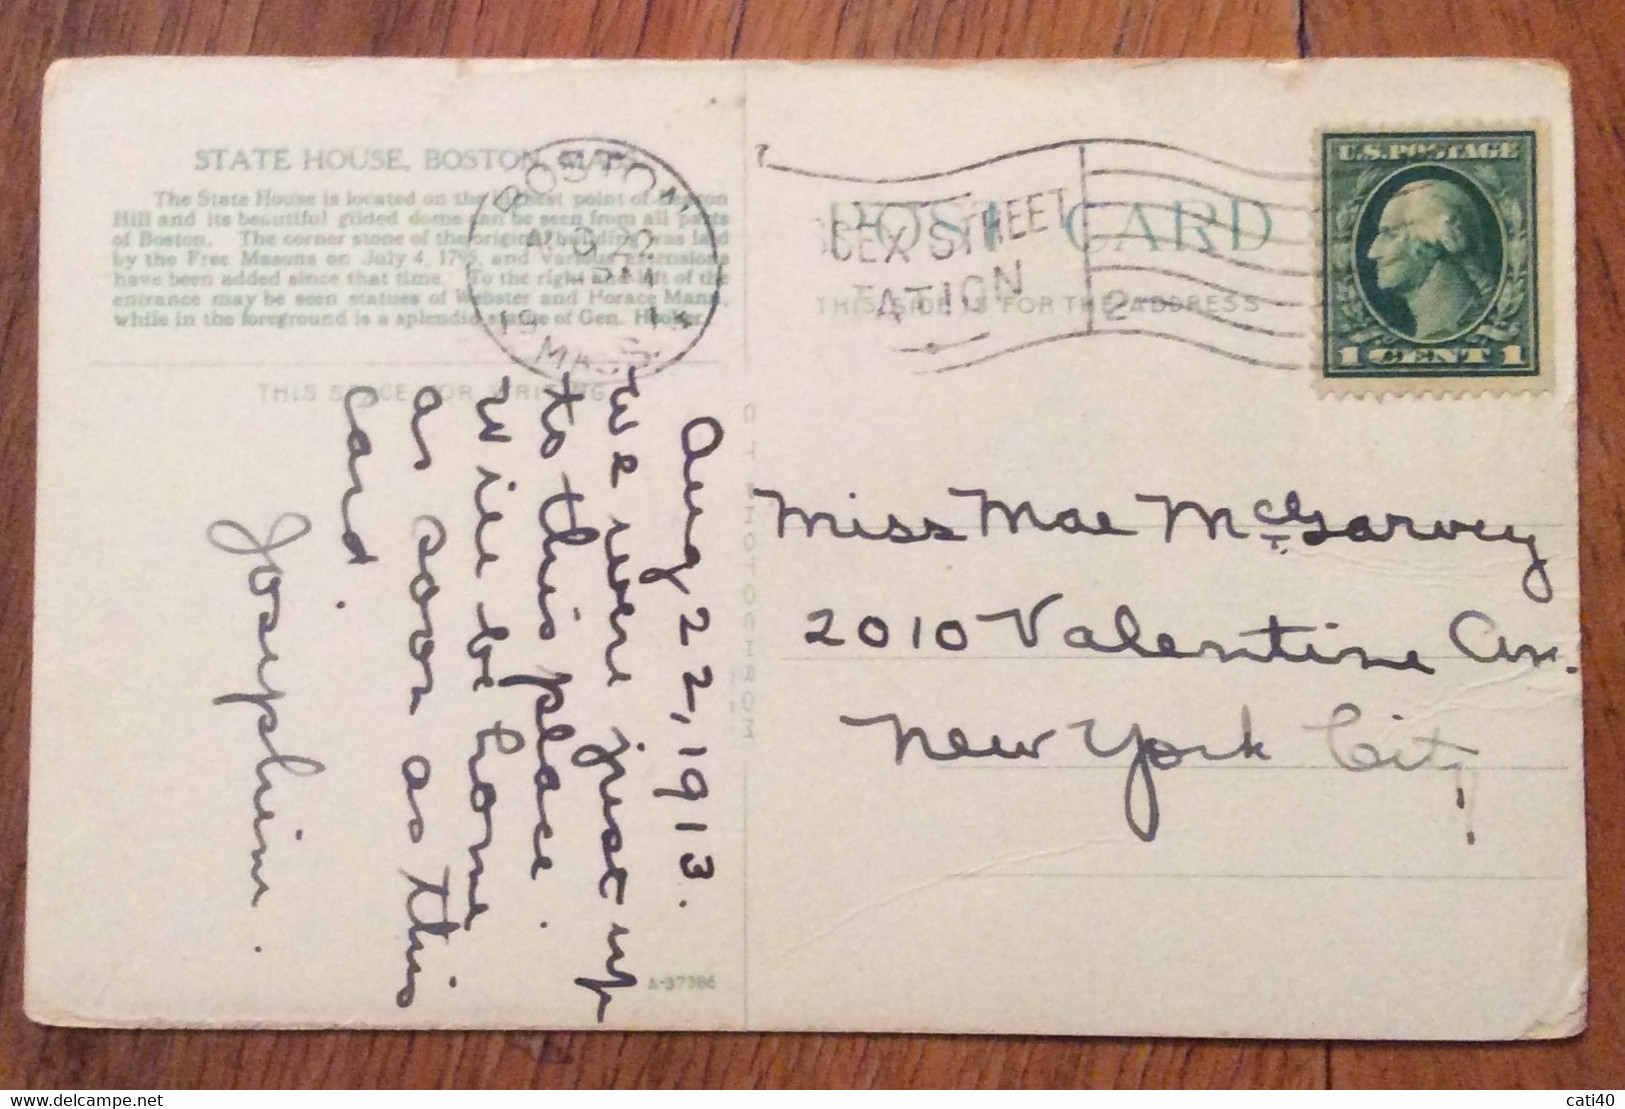 STATE HOUSE, BOSTON, MASS.
The State House is located on the highest point of Beacon
Hill and its beautiful gilded dome can be seen from all parts
of Boston. The corner stone of the original building was laid
by the Free Masons on July 4, 1795, and various extensions
have been added since that time. To the right and left of the
entrance may be seen statues of Webster and Horace Mann,
while in the foreground is a splendid statue of Gen. Hooker.
THIS SPACE FOR WRITING
BOSTON
MASS.
Aug 22, 1913.
We were just up
to this place.
Will be home
as soon as this
card.
Josephine.
A-37386
C T PHOTOCHROM
POST CARD
THIS SIDE IS FOR THE ADDRESS
SEX STREET
TATION
2
U.S. POSTAGE
1 CENT 1
Miss Mae McGarvey
2010 Valentine Av.
New York City
www.delcampe.net
cati40